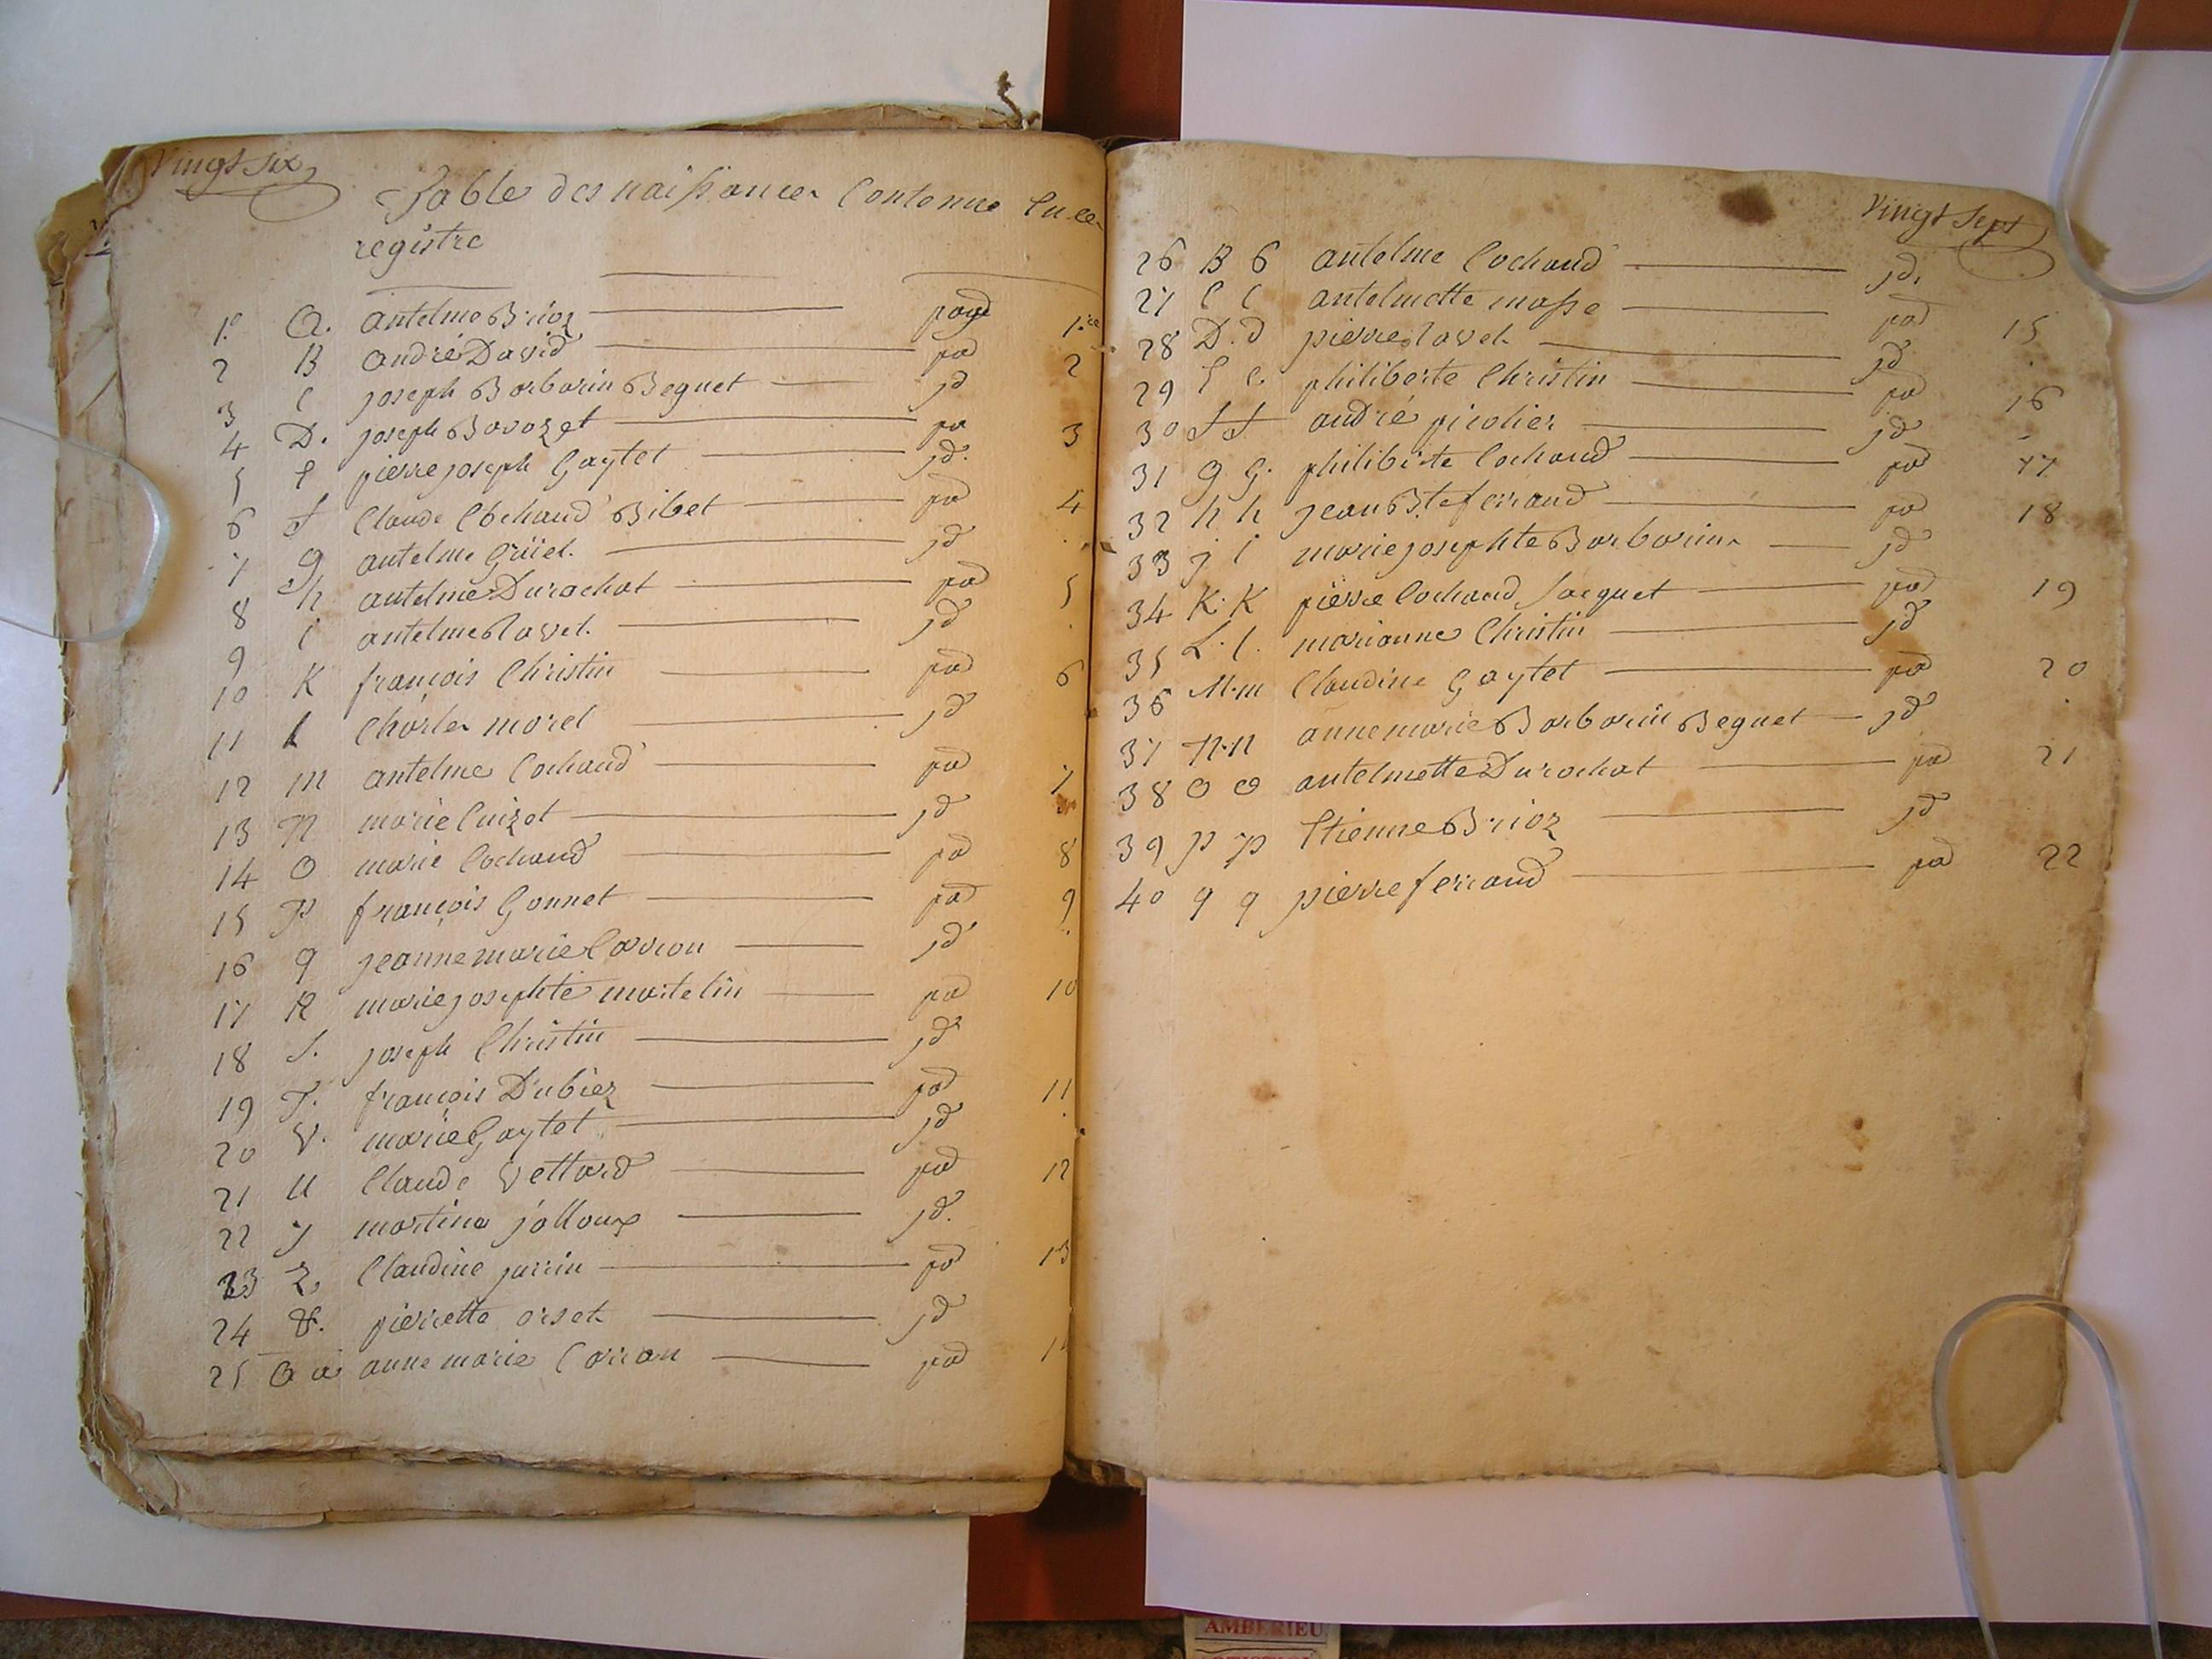 Vingt six
Table des naissances Contenue En ce
registre
1.º a. antelme Brioz page 1.re
2 B andré David pad 2
3 C joseph Barbarin Beguet jd
4 D. joseph Bavozet pa 3
5 E pierre joseph Gaytet jd.
6 f Claude Cochaud Bibet pad 4
7 g antelme Guiet jd
8 h antelme Durochat pad 5
9 i antelme Ravet jd
10 K françois Christin pad 6
11 L Charles morel jd
12 m antelme Cochaud pad 7
13 N marie Cuizet jd
14 O marie Cochaud pad 8
15 P françois Gonnet pad 9
16 q jeanne marie Carron jd
17 R marie josephte martelin pad 10
18 S. joseph Christin jd
19 T. françois Dubiez pad 11
20 V. marie Gaytet jd
21 U Claude Vettard pad 12
22 y martine jolloux jd.
23 Z Claudine jarrin pad 13
24 &. pierrette orset jd
25 a a anne marie Carron pad 14
Vingt Sept
26 B b antelme Cochaud jd.
27 C C antelmette masse pad 15
28 D. d pierre Ravet jd
29 E e. philiberte Christin pad 16
30 f f andré picolier jd
31 g. G. philiberte Cochaud pad 17
32 h h jean Bte ferrand pad 18
33 j i marie josephte Barbarin jd
34 K. K pierre Cochaud Jacquet pad 19
35 L. l. marianne Christin jd
36 M. m Claudine Gaytet pad 20
37 N. n anne marie Barbarin Beguet jd
38 O O antelmette Durochat pad 21
39 p p Etienne Brioz jd
40 q q pierre ferrand pad 22
AMBERIEU